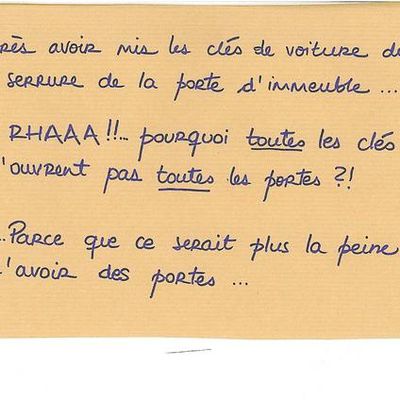 rès avoir mis les clés de voiture d
serrure de la porte d'immeuble ...
RHAAA!!... pourquoi toutes les clés
'ouvrent pas toutes les portes ?!
...Parce que ce serait plus la peine
d'avoir des portes ...